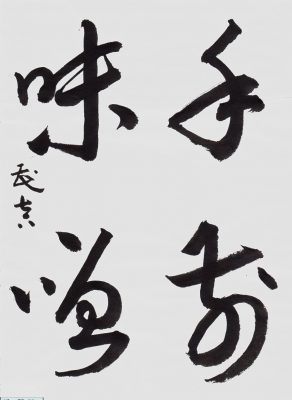 手前
味噌